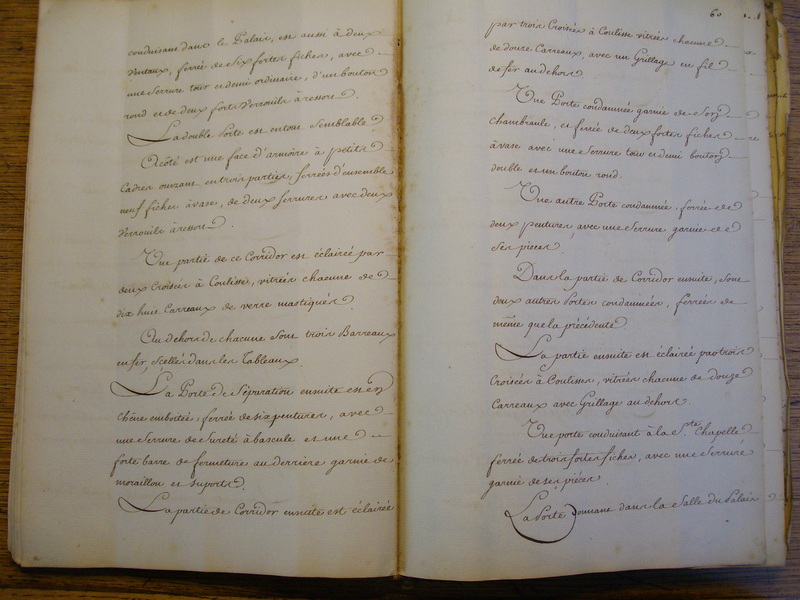 conduisant dans le Palais, est aussi à deux
Ventaux, ferrée de six fortes fiches, avec
une Serrure tour et demi ordinaire, d'un bouton
rond et de deux forts Verrouils à ressort.
La double Porte est en tout Semblable
A côté est une face d'armoire à petits
Cadres ouvrant en trois parties, ferrées d'ensemble
neuf fiches à vase, de deux Serrures avec deux
Verrouils à ressort.
Une partie de ce Corridor est éclairée par
deux Croisées à Coulisse, vitrées chacune de
dix huit Carreaux de verre mastiqués.
Au dehors de chacune Sont trois Barreaux
en fer, Scellés dans les Tableaux.
La Porte de Séparation ensuite est en
chêne emboitée, ferrée de six pentures, avec
une Serrure de Sureté à bascule et une
forte barre de fermeture au derrière garnie de
moraillon et suports.
La partie de Corridor ensuite est éclairée
60
par trois Croisées à Coulisse vitrées chacune
de douze Carreaux, avec un Grillage en fil
de fer au dehors
Une Porte condamnée garnie de son
chambranle, et ferrée de deux fortes fiches
à vase avec une Serrure tour et demi bouton
double et un bouton rond.
Une autre Porte condamnée ferrée de
deux pentures, avec une Serrure garnie de
Ses pieces
Dans la partie de Corridor ensuite, Sont
deux autres Portes condamnées, ferrées de
même que la précédente
La partie ensuite est éclairée par trois
Croisées à Coulisses, vitrées chacune de douze
Carreaux avec Grillage au dehors.
Une porte conduisant à la Ste Chapelle
ferrée de trois fortes fiches, avec une Serrure
garnie de ses pièces.
La Porte donnant dans la Salle du Palais